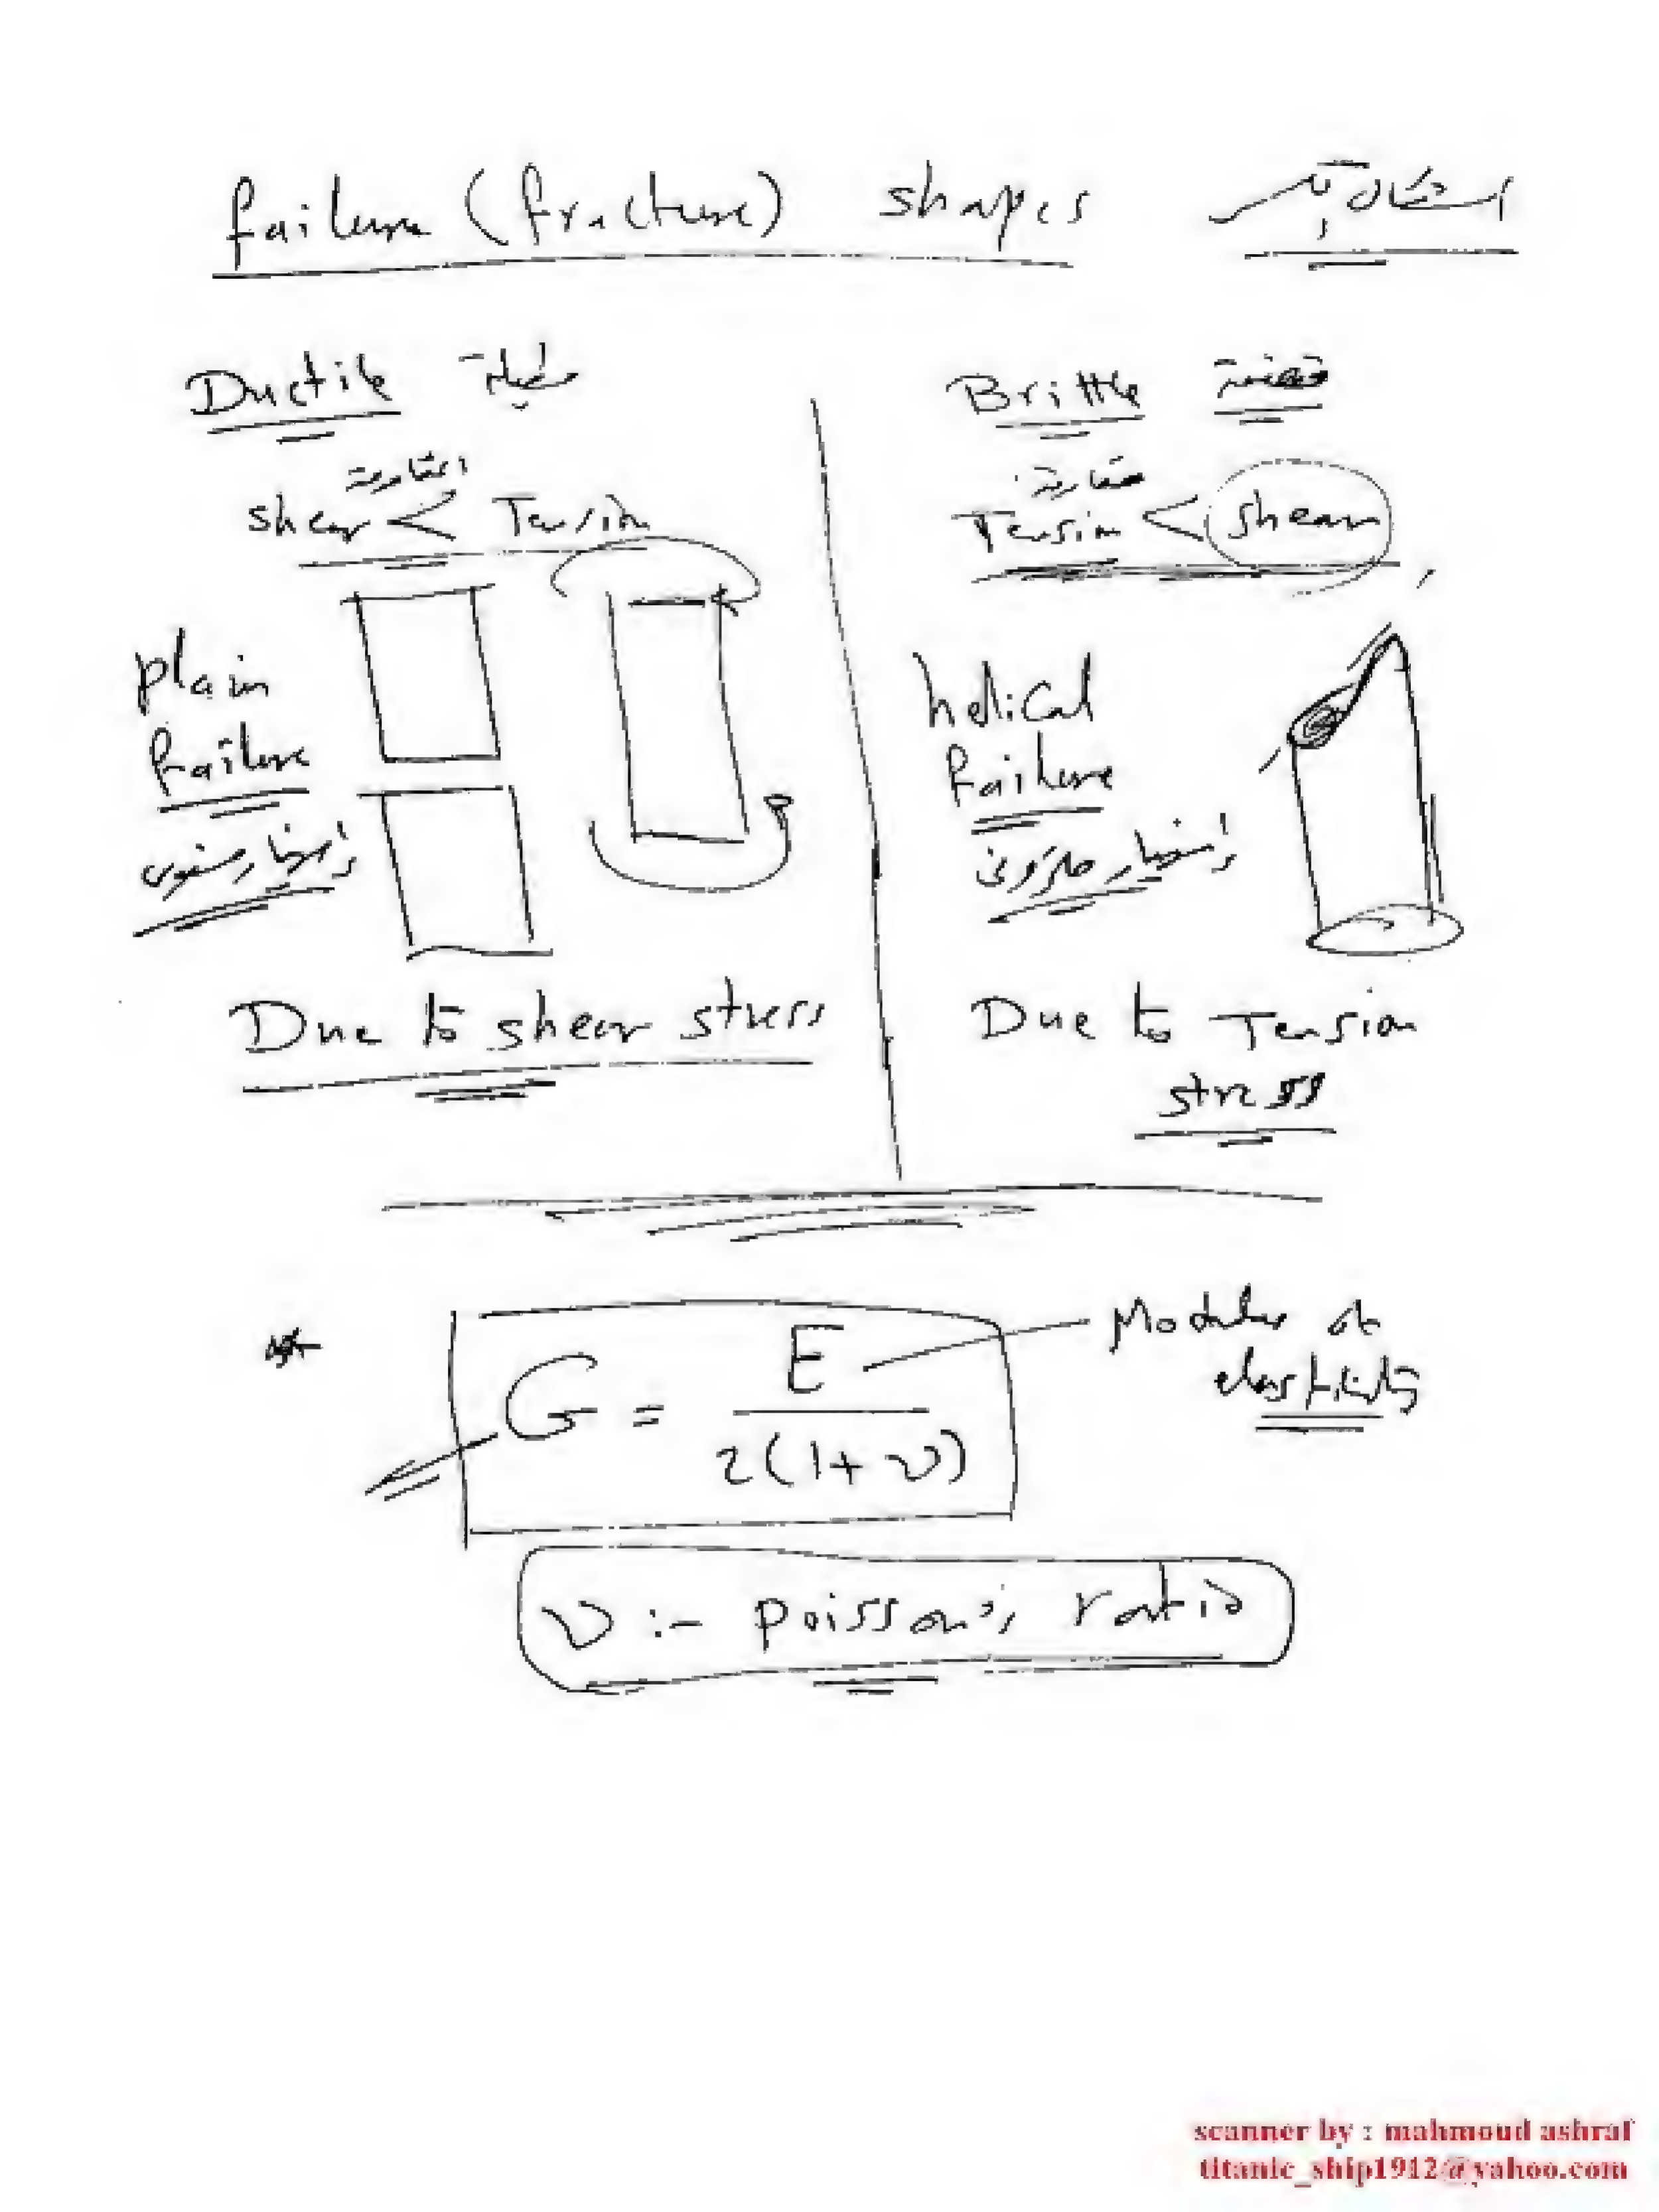 failure (fracture) shapes أشكال الكسر
Ductile مطيلة
مقاومة
shear < Tension
plain
failure
إنهيار مستوى
Due to shear stress
Brittle قصفة
مقاومة
Tension < shear
helical
failure
إنهيار حلزونى
Due to Tension
stress
G = E / 2(1+ν)
Modulus of
elasticity
ν :- poisson's ratio
scanner by : mahmoud ashraf
titanic_ship1912@yahoo.com